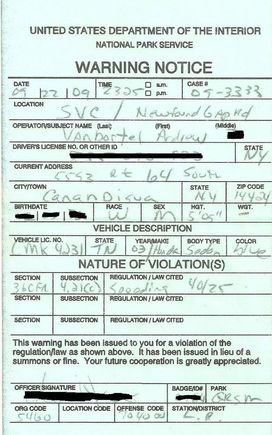 UNITED STATES DEPARTMENT OF THE INTERIOR
NATIONAL PARK SERVICE
WARNING NOTICE
DATE TIME a.m. p.m. CASE #
09 22 09 2325 09-3333
LOCATION
SVC / Newfound Gap Rd
OPERATOR/SUBJECT NAME (Last) (First) (Middle)
Andrew
DRIVER'S LICENSE NO. OR OTHER ID STATE
NY
CURRENT ADDRESS
Rt South
CITY/TOWN STATE ZIP CODE
NY 14424
BIRTHDATE RACE SEX HGT. WGT.
W M 5'05" -
VEHICLE DESCRIPTION
VEHICLE LIC. NO. STATE YEAR/MAKE BODY TYPE COLOR
TN 03/Honda Sedan blue
NATURE OF VIOLATION(S)
SECTION SUBSECTION REGULATION / LAW CITED
36CFR 4.21(c) Speeding 40/25
SECTION SUBSECTION REGULATION / LAW CITED
SECTION SUBSECTION REGULATION / LAW CITED
This warning has been issued to you for a violation of the
regulation/law as shown above. It has been issued in lieu of a
summons or fine. Your future cooperation is greatly appreciated.
OFFICER SIGNATURE BADGE/ID# PARK
GRSM
ORG CODE LOCATION CODE OFFENSE CODE STATION/DISTRICT
5460